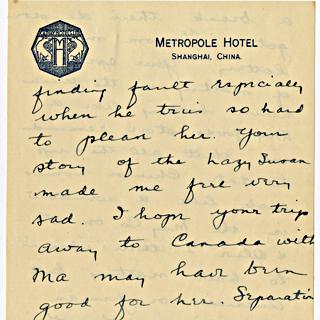 METROPOLE HOTEL
SHANGHAI, CHINA.
finding fault especially
when he tries so hard
to please her. Your
story of the Lazy Susan
made me feel very
sad. I hope your trip
away to Canada with
Ma may have been
good for her. Separation